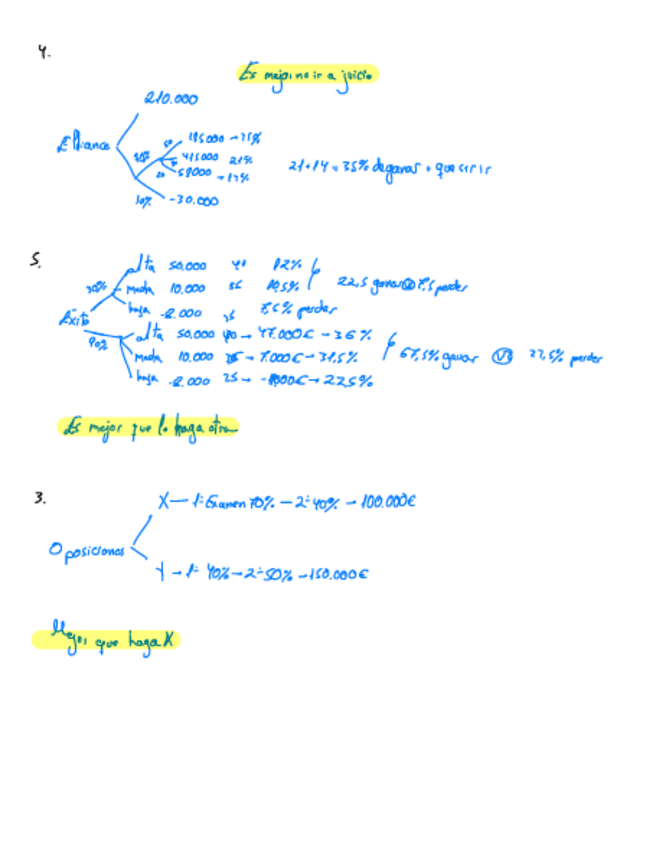 4.
Es mejor no ir a juicio
210.000
50 185000 → 25%
90% 415000 21%
20 58000
10% -30.000
21+14 = 35% de ganar + que si ir
5.
alta 50.000 40 12%
30% Media 10.000 35 10,5% 22,5 ganar 7,5 perder
baja -8.000 25 7,5% perder
Éxito
alta 50.000 40 → 47.000€ → 36%
90% Media 10.000 35 → 7.000€ → 31,5% 67,5% ganar VS 22,5% perder
baja -8.000 25 → → 22,5%
Es mejor que lo haga otra
3.
X — 1º Examen 70% — 2º 40% → 100.000€
Oposiciones
Y → 1º 40% → 2º 50% → 150.000€
Mejor que haga X